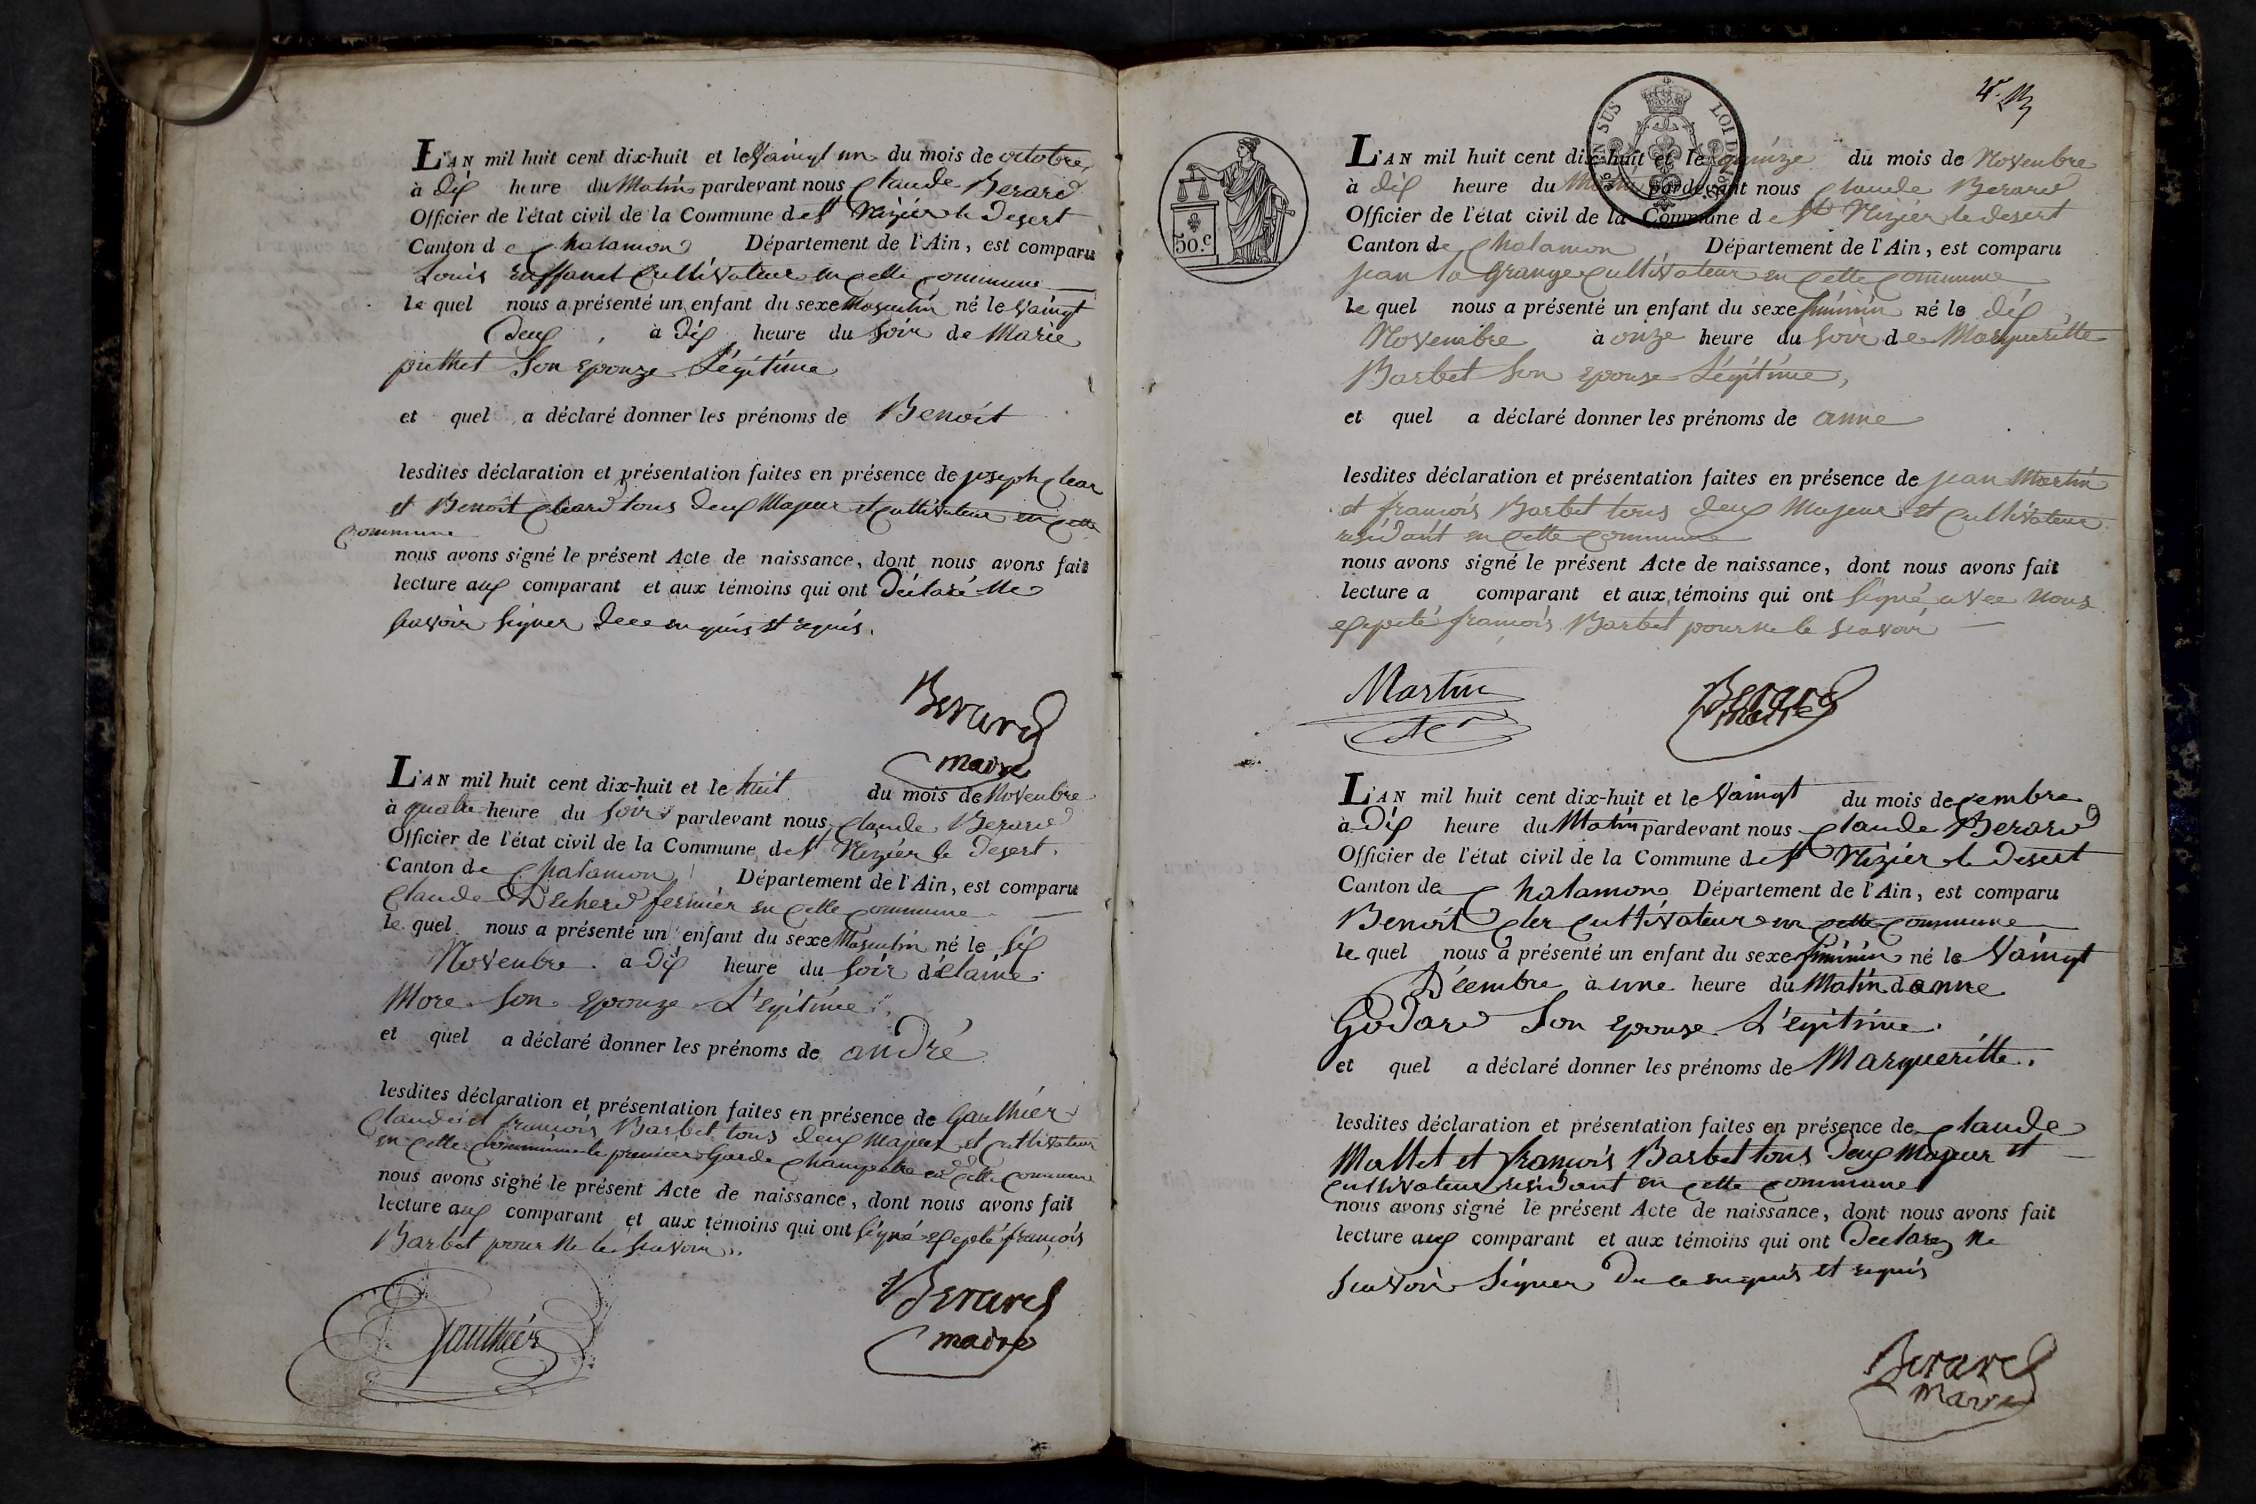 L'AN mil huit cent dix-huit et le Vaingt un du mois de octobre
à dix heure du Matin pardevant nous Claude Berard
Officier de l'état civil de la Commune de St Nizier le Desert
Canton de Chalamon Département de l'Ain, est comparu
Louis cultivateur en cette commune
le quel nous a présenté un enfant du sexe Masculin né le Vaingt
Deux à Dix heure du Soir de Marie
puthet Son epouze Légitime
et quel a déclaré donner les prénoms de Benoit
lesdites déclaration et présentation faites en présence de joseph
et Benoit tous deux Majeur et cultivateur en cette
commune
nous avons signé le présent Acte de naissance, dont nous avons fait
lecture aux comparant et aux témoins qui ont Déclaré Ne
scavoir signer de ce enquis et requis.
Berard
maire
L'AN mil huit cent dix-huit et le huit du mois de Novenbre
à quatre heure du Soir pardevant nous Claude Berard
Officier de l'état civil de la Commune de St Nizier le Desert.
Canton de Chalamon Département de l'Ain, est comparu
Claude fermier en cette commune
le quel nous a présenté un enfant du sexe Masculin né le Six
Novenbre à Dix heure du Soir
More Son epouze Légitime
et quel a déclaré donner les prénoms de andré
lesdites déclaration et présentation faites en présence de Gauthier
Claude et francois Barbet tous deux Majeur et cultivateur
en cette commune le premier Garde Champetre en cette commune
nous avons signé le présent Acte de naissance, dont nous avons fait
lecture aux comparant et aux témoins qui ont signé excepté francois
Barbet pour Ne le scavoir.
Gauthier
Berard
maire
SUS LOI DE
50.c
L'AN mil huit cent dix-huit et le quinze du mois de Novenbre
à dix heure du Matin pardevant nous Claude Berard
Officier de l'état civil de la Commune de St Nizier le desert
Canton de Chalamon Département de l'Ain, est comparu
jean la Grange cultivateur en cette commune
le quel nous a présenté un enfant du sexe feminin né le dix
Novembre à onze heure du Soir de Margueritte
Barbet Son epouse Légitime,
et quel a déclaré donner les prénoms de anne
lesdites déclaration et présentation faites en présence de jean Martin
et francois Barbet tous deux Majeur et cultivateur
residant en cette commune
nous avons signé le présent Acte de naissance, dont nous avons fait
lecture a comparant et aux témoins qui ont signé avec Nous
excepté francois Barbet pour ne le scavoir
Martin
Berard
maire
L'AN mil huit cent dix-huit et le Vaingt du mois de cembre
à Dix heure du Matin pardevant nous Claude Berard
Officier de l'état civil de la Commune de St Nizier le Desert
Canton de Chalamon Département de l'Ain, est comparu
Benoit cler cultivateur en cette commune
le quel nous a présenté un enfant du sexe feminin né le Vaingt
Décembre à une heure du Matin d anne
Godard Son epouse Légitime.
et quel a déclaré donner les prénoms de Margueritte.
lesdites déclaration et présentation faites en présence de Claude
Mollet et francois Barbet tous deux Majeur et
cultivateur residant en cette commune
nous avons signé le présent Acte de naissance, dont nous avons fait
lecture aux comparant et aux témoins qui ont Declarez Ne
scavoir signer De ce enquis et requis
Berard
Maire